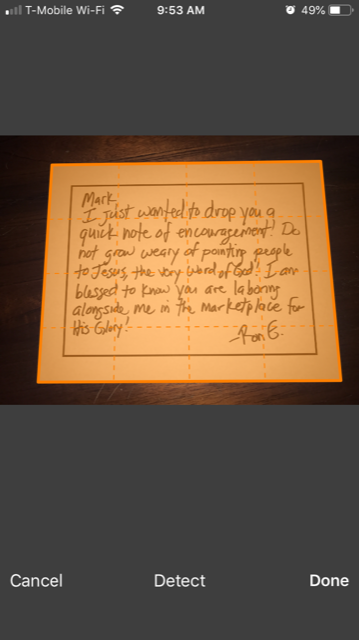 T-Mobile Wi-Fi 9:53 AM 49%
Mark,
I just wanted to drop you a
quick note of encouragement! Do
not grow weary of pointing people
to Jesus, the very Word of God! I am
blessed to know you are laboring
alongside me in the marketplace for
His Glory!
-Ron E.
Cancel Detect Done